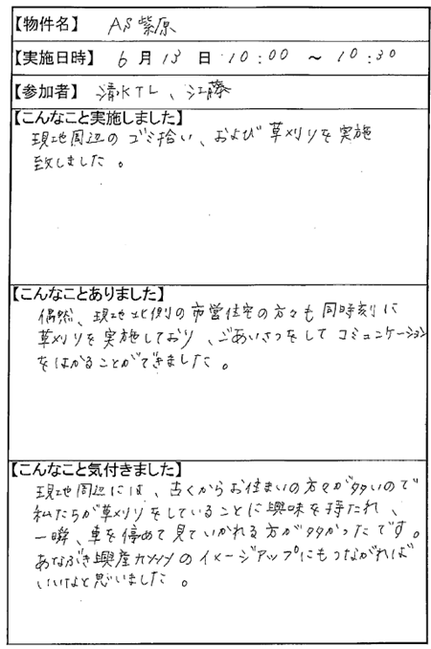 【物件名】 AS紫原
【実施日時】 6月13日 10:00 ~ 10:30
【参加者】 清水TL、江藤
【こんなこと実施しました】
現地周辺のゴミ拾い、および草刈りを実施
致しました。
【こんなことありました】
偶然、現地北側の市営住宅の方々も同時刻に
草刈りを実施しており、ごあいさつをしてコミュニケーション
をはかることができました。
【こんなこと気付きました】
現地周辺には、古くからお住まいの方々が多いので
私たちが草刈りをしていることに興味を持たれ、
一瞬、車を停めて見ていかれる方が多かったです。
あなぶき興産のイメージアップにもつながれば
いいなと思いました。